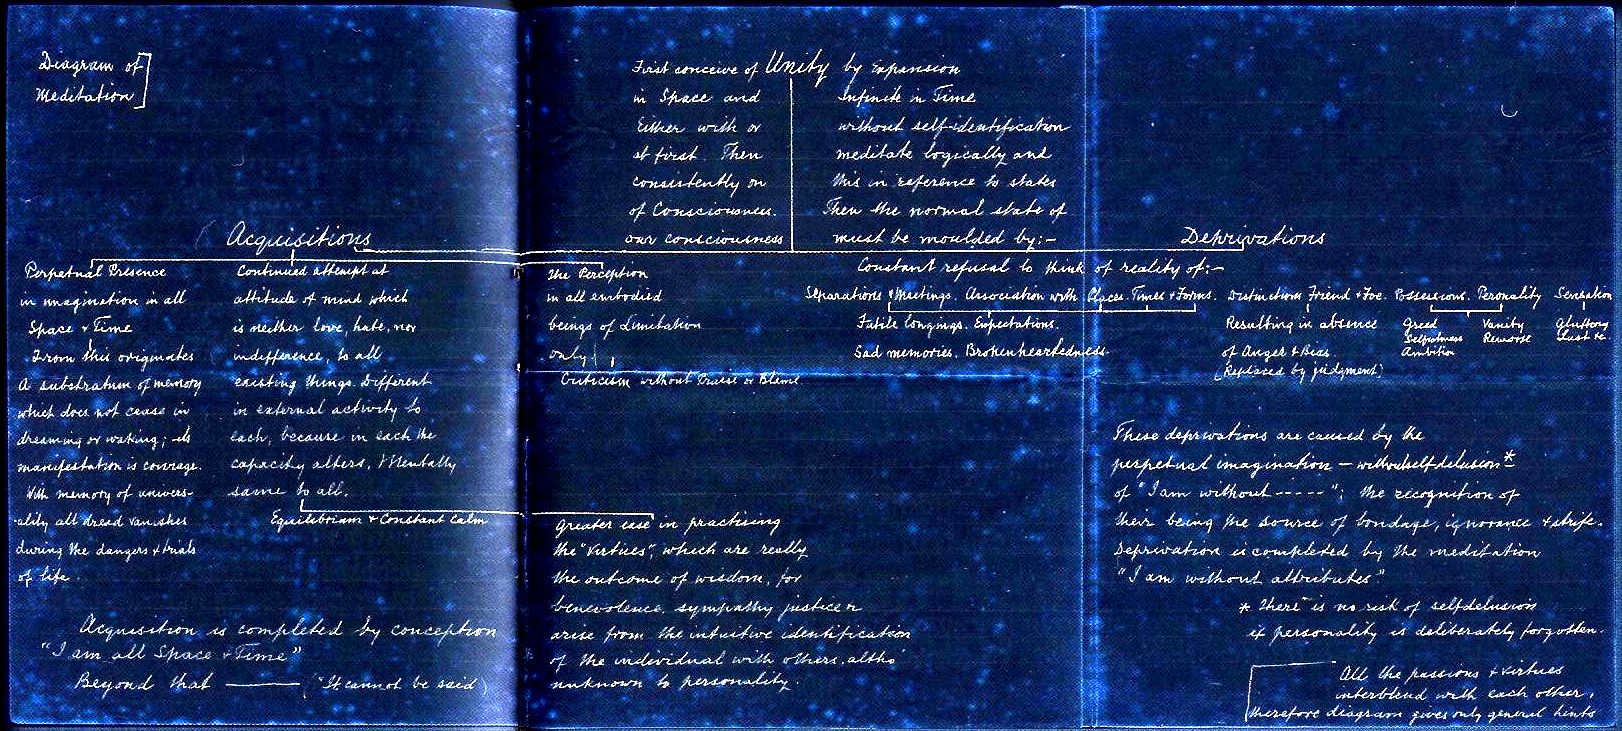 Diagram of
Meditation
First conceive of Unity by Expansion
in Space and Infinite in Time
Either with or without self-identification
at first. Then meditate logically and
consistently on this in reference to states
of Consciousness. Then the normal state of
our consciousness must be moulded by:-
Acquisitions
Perpetual Presence
in imagination in all
Space + Time
From this originates
a substratum of memory
which does not cease in
dreaming or waking; its
manifestation is courage.
With memory of univers-
ality all dread vanishes
during the dangers + trials
of life.
Continued attempt at
attitude of mind which
is neither love, hate, nor
indifference, to all
existing things. Different
in external activity to
each, because in each the
capacity alters. Mentally
same to all.
Equilibrium + Constant Calm
The Perception
in all embodied
beings of Limitation
only
Criticism without Praise or Blame.
greater ease in practising
the "Virtues", which are really
the outcome of wisdom, for
benevolence, sympathy justice
arise from the intuitive identification
of the individual with others, altho'
unknown to personality.
Acquisition is completed by conception
"I am all Space + Time"
Beyond that ——— ("It cannot be said)
Deprivations
Constant refusal to think of reality of:-
Separations + Meetings. Association with Places. Times + Forms. Distinctions Friend + Foe. Possessions. Personality Sensation
Futile longings. Expectations.
Sad memories. Brokenheartedness.
Resulting in absence
of Anger + Bias.
(Replaced by judgment)
Greed
Selfishness
Ambition
Vanity
Remorse
Gluttony
Lust &c.
These deprivations are caused by the
perpetual imagination - without self delusion*
of "I am without -----"; the recognition of
their being the source of bondage, ignorance + strife.
Deprivation is completed by the meditation
"I am without attributes"
* There is no risk of selfdelusion
if personality is deliberately forgotten.
All the passions + virtues
interblend with each other,
therefore diagram gives only general hints